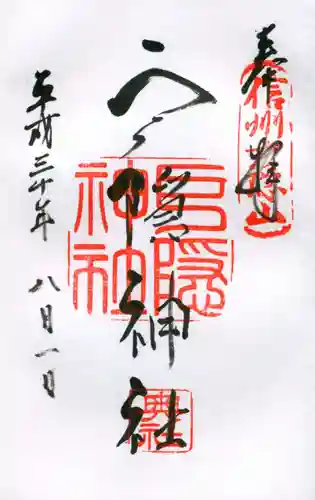 奉拝
信州戸隠山
戸隠神社
戸隠神社
奥社
平成三十年 八月一日